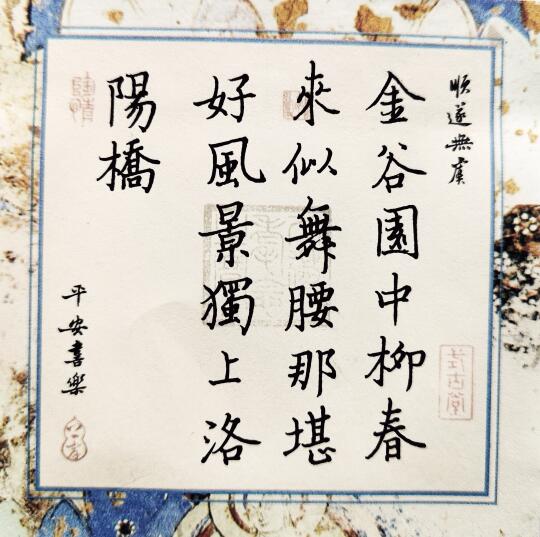 順遂無虞
金谷園中柳春
來似舞腰那堪
好風景獨上洛
陽橋
平安喜樂
式古堂